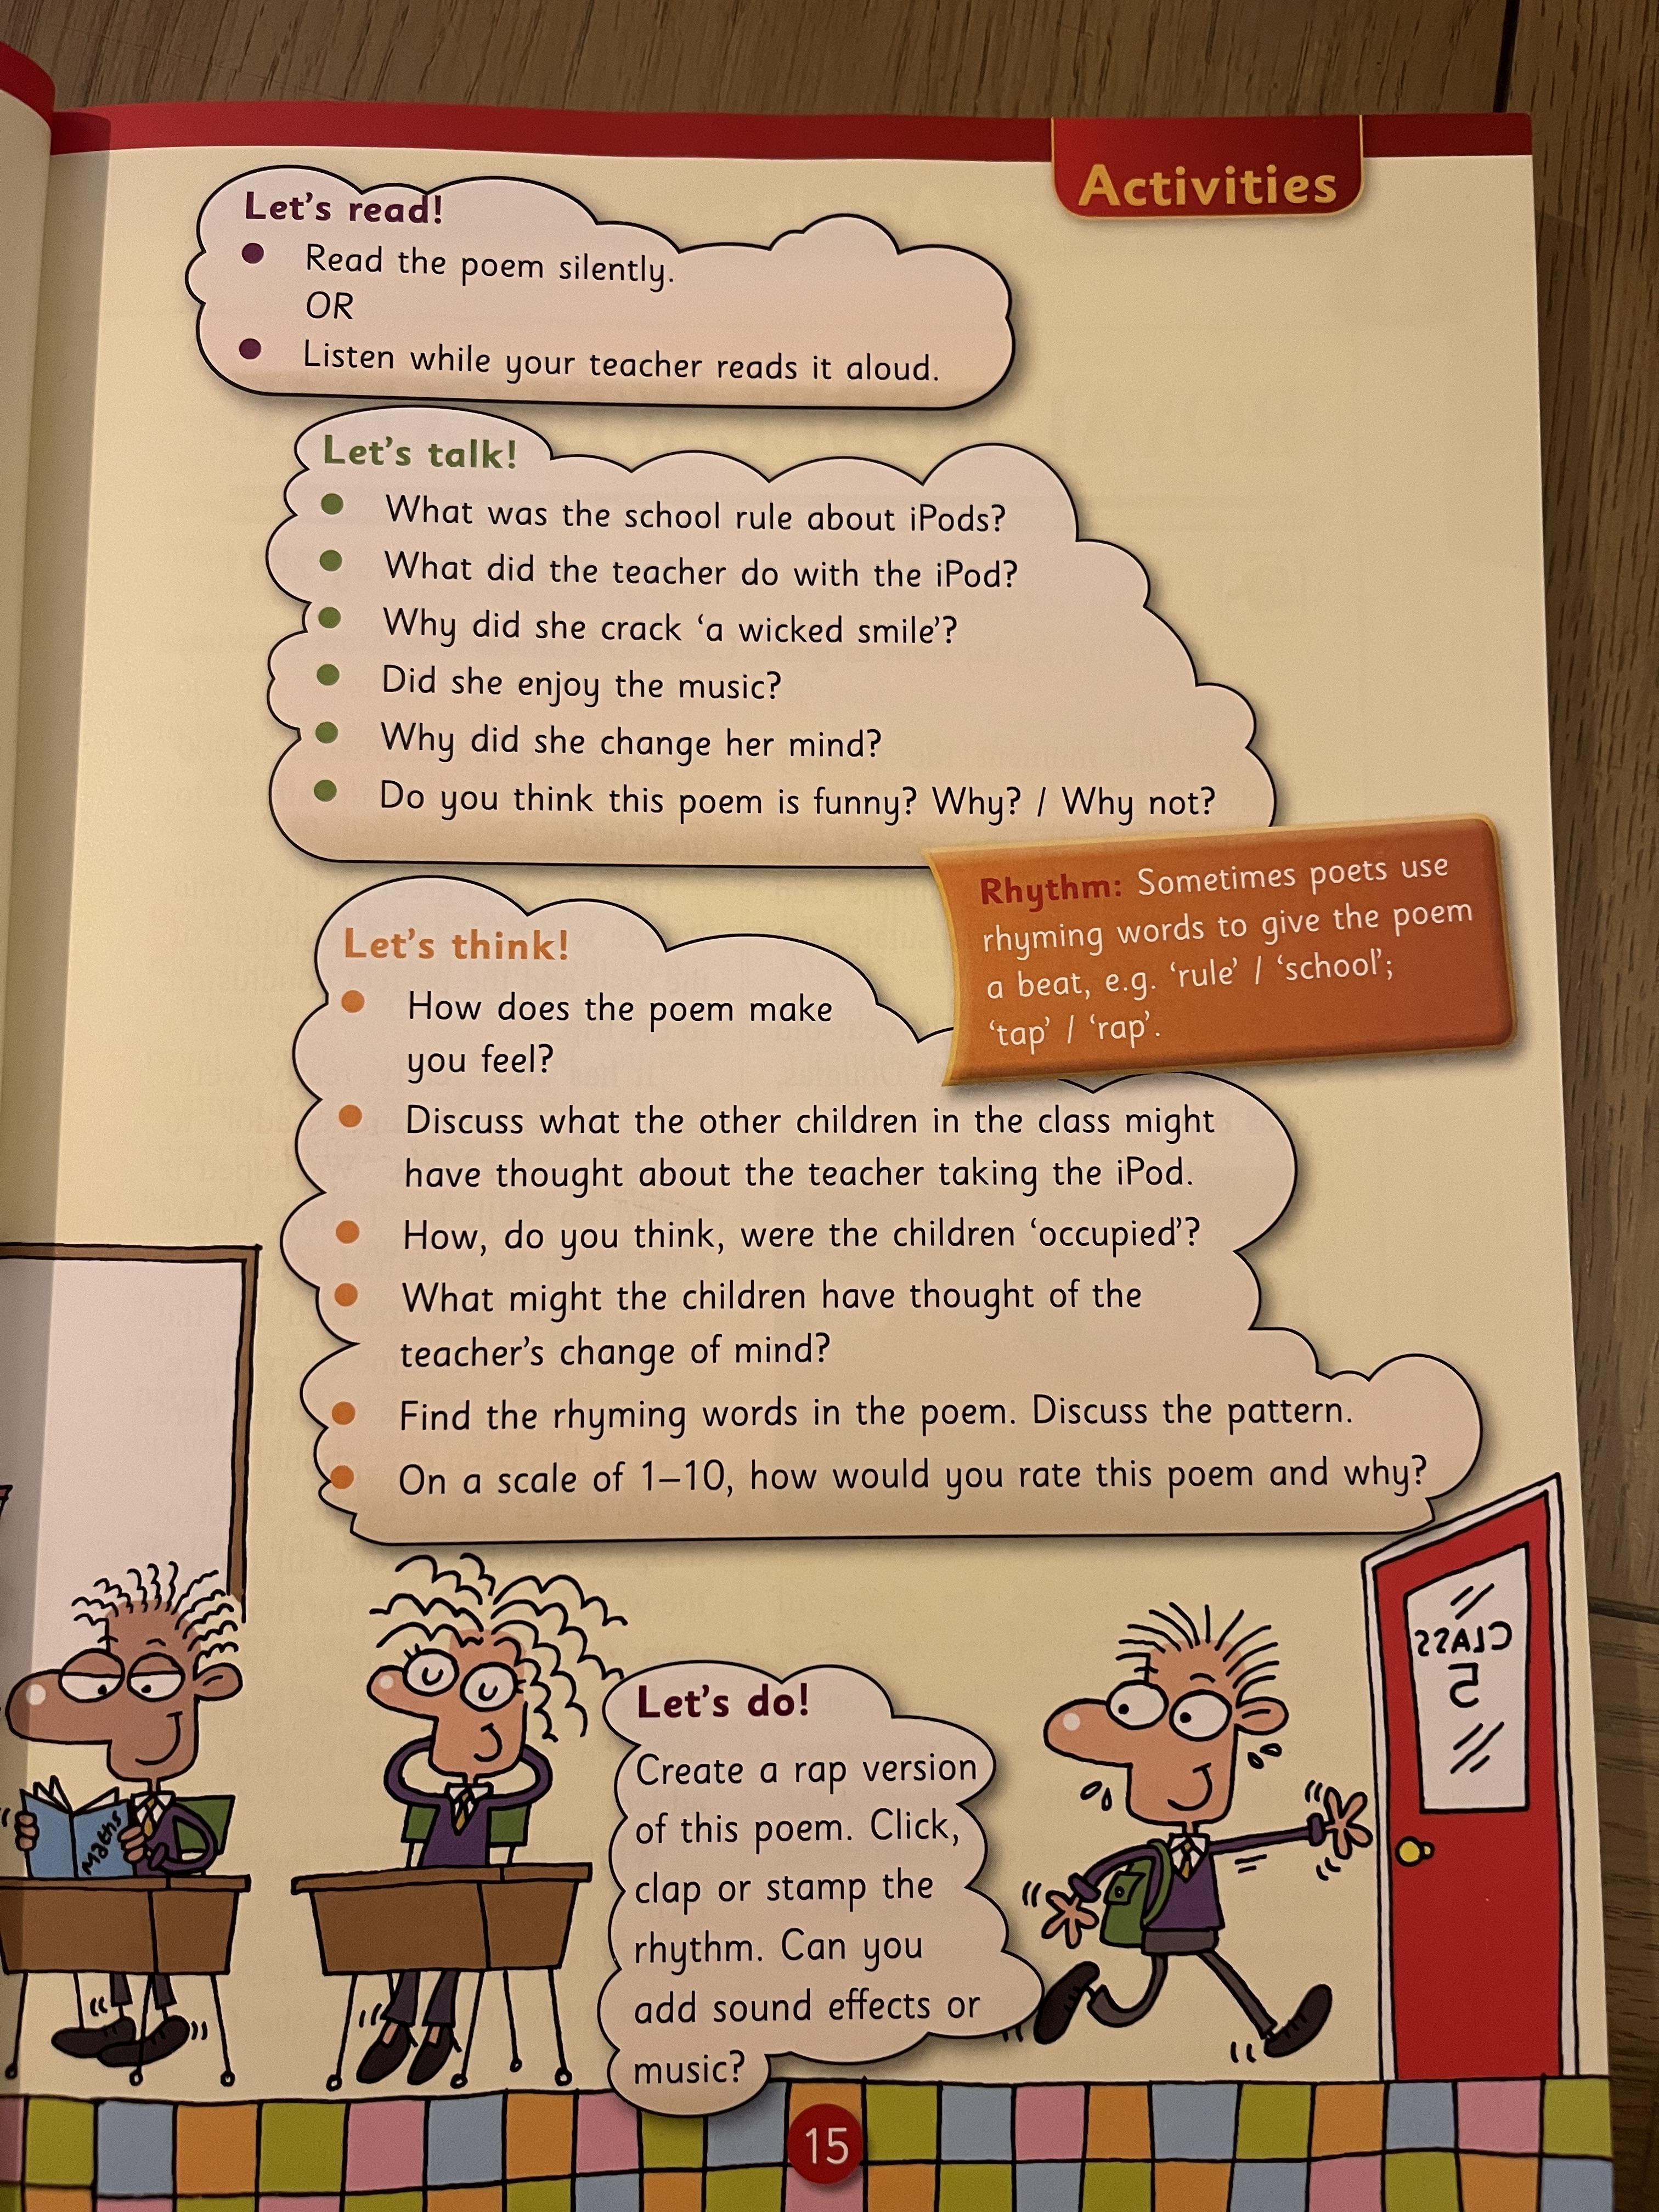 Activities
Let's read!
Read the poem silently.
OR
Listen while your teacher reads it aloud.
Let's talk!
What was the school rule about iPods?
What did the teacher do with the iPod?
Why did she crack ‘a wicked smile’?
Did she enjoy the music?
Why did she change her mind?
Do you think this poem is funny? Why? / Why not?
Rhythm: Sometimes poets use
rhyming words to give the poem
a beat, e.g. ‘rule’ / ‘school’;
‘tap’ / ‘rap’.
Let's think!
How does the poem make
you feel?
Discuss what the other children in the class might
have thought about the teacher taking the iPod.
How, do you think, were the children ‘occupied’?
What might the children have thought of the
teacher's change of mind?
Find the rhyming words in the poem. Discuss the pattern.
On a scale of 1–10, how would you rate this poem and why?
CLASS
5
Maths
Let's do!
Create a rap version
of this poem. Click,
clap or stamp the
rhythm. Can you
add sound effects or
music?
15